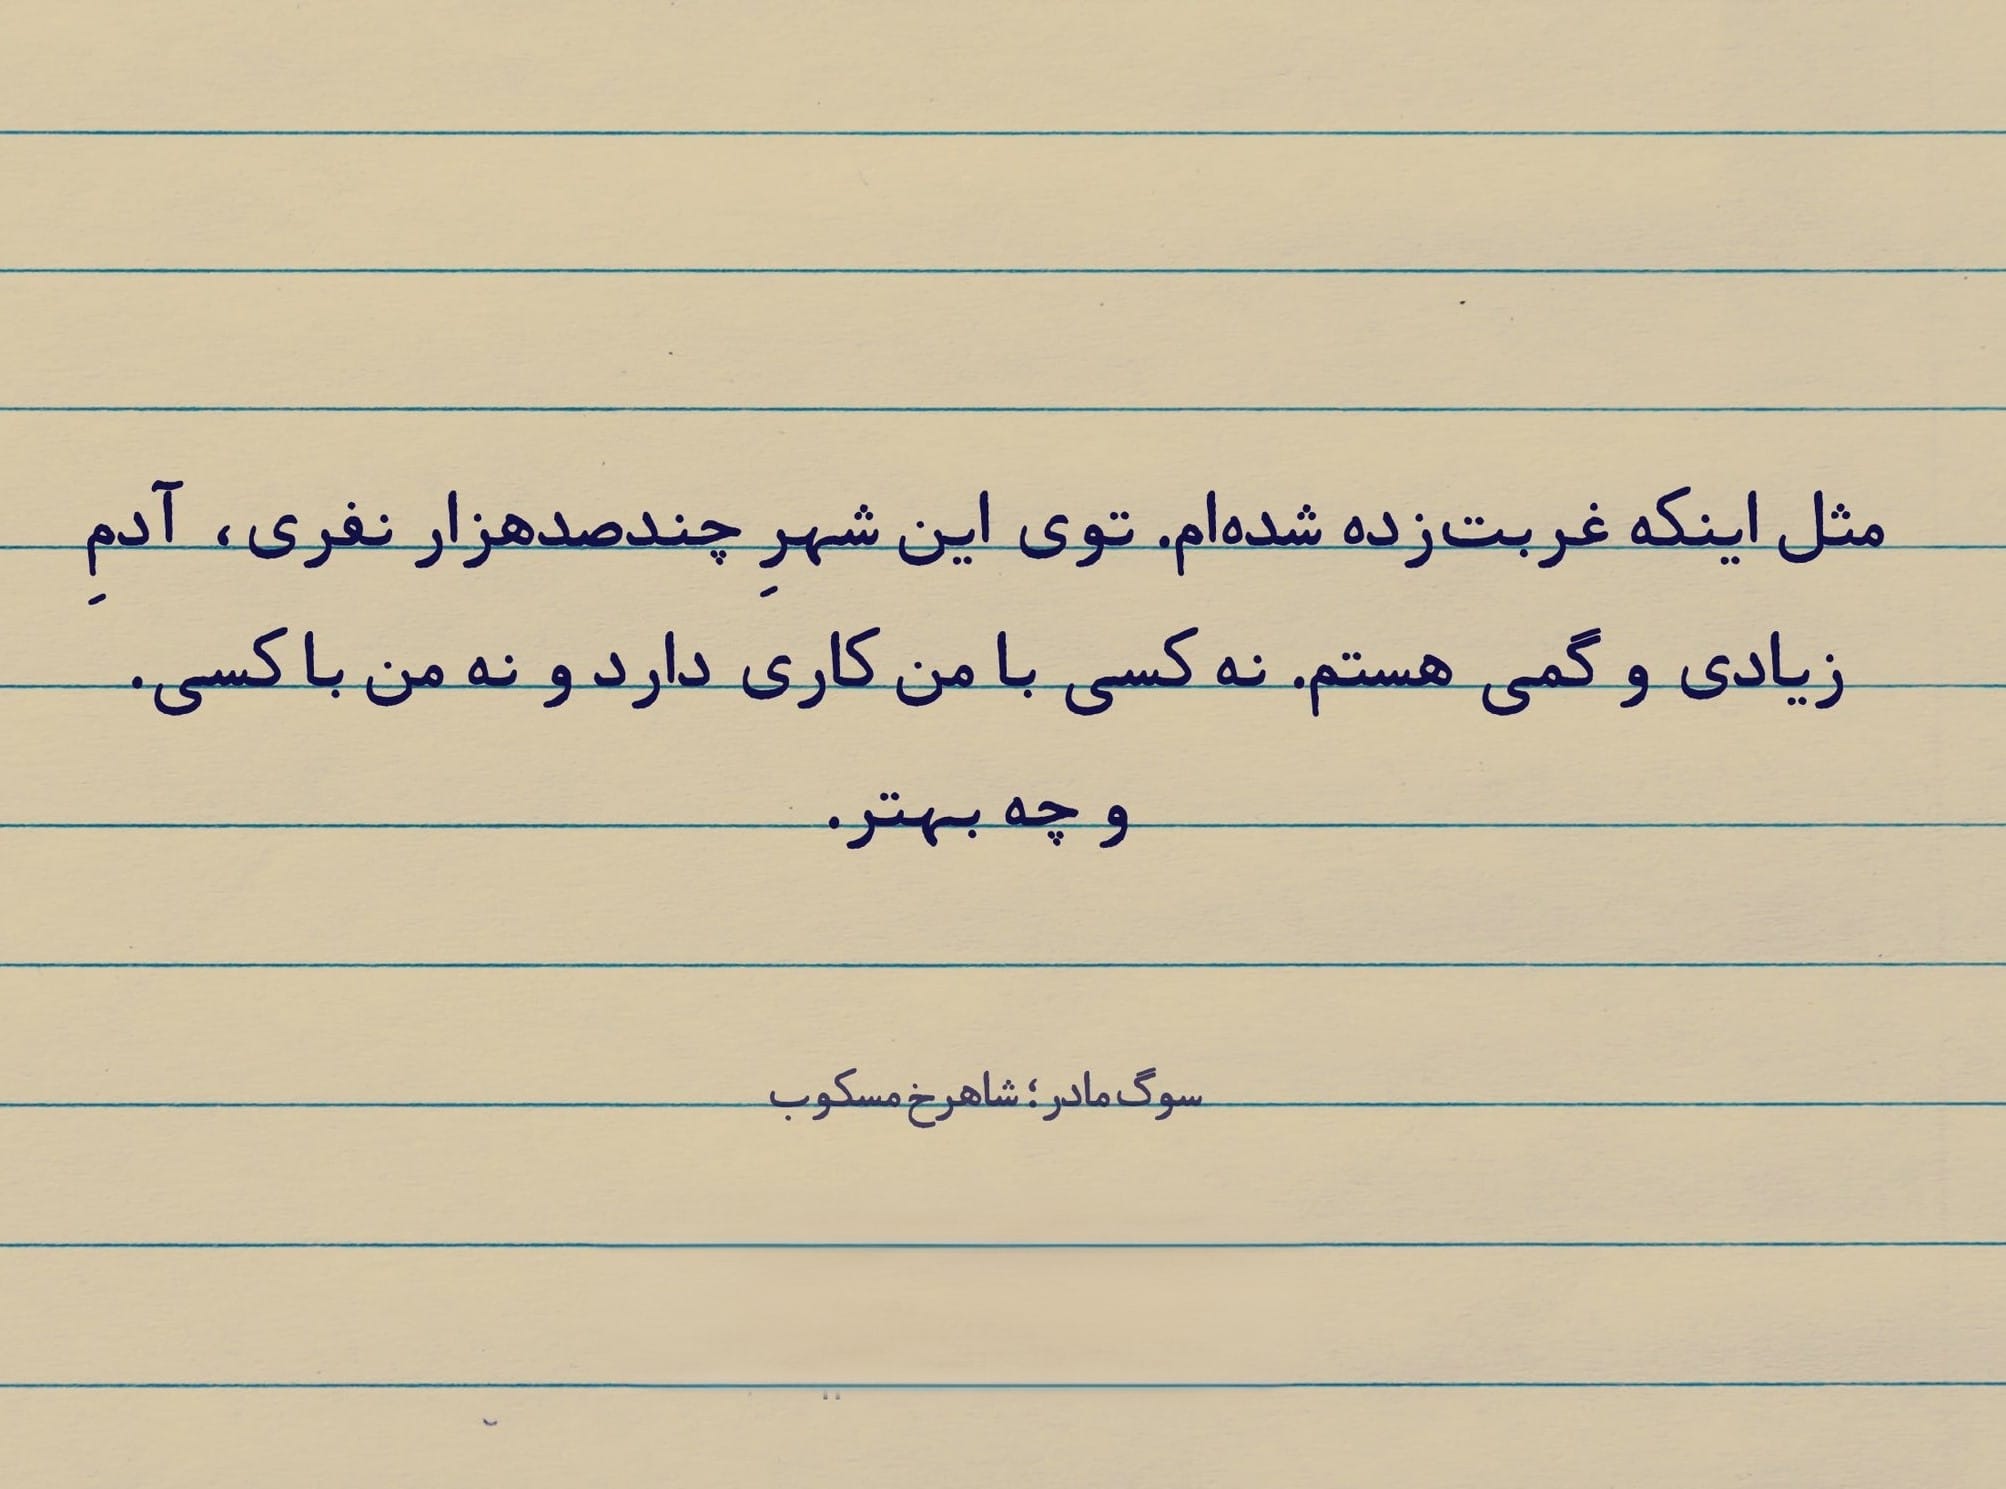 مثل اینکه غربت‌زده شده‌ام. توی این شهرِ چندصدهزار نفری، آدمِ
زیادی و گمی هستم. نه کسی با من کاری دارد و نه من با کسی.
و چه بهتر.
سوگ مادر؛ شاهرخ مسکوب